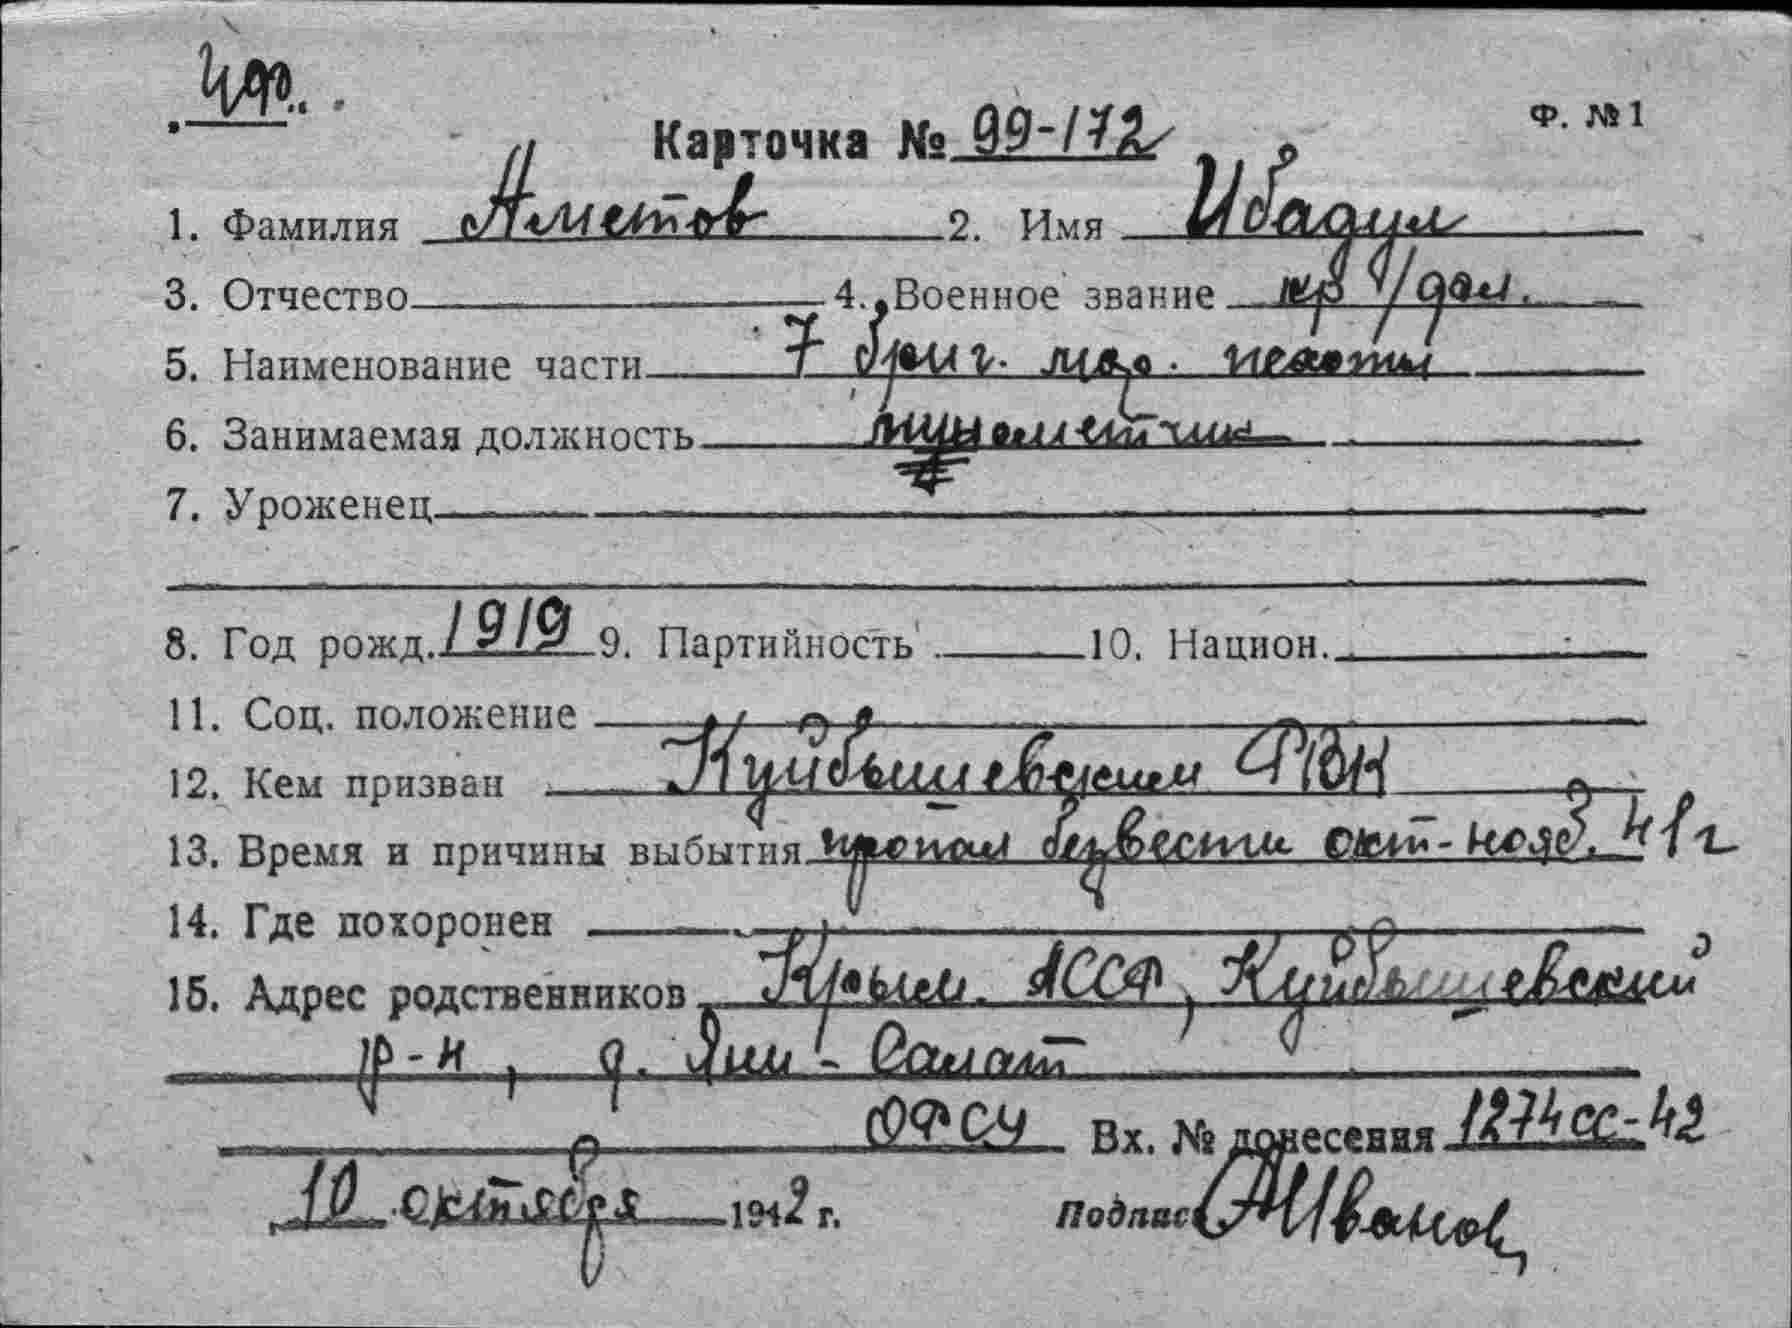 ЧФ.
Ф. №1
Карточка № 99-172
1. Фамилия Аметов 2. Имя Ибадул
3. Отчество 4. Военное звание кр-ц
5. Наименование части 7 бриг. мор. пехоты
6. Занимаемая должность минометчик
7. Уроженец
8. Год рожд. 1919 9. Партийность 10. Национ.
11. Соц. положение
12. Кем призван Куйбышевским РВК
13. Время и причины выбытия пропал безвести окт-нояб. 41 г
14. Где похоронен
15. Адрес родственников Крым. АССР, Куйбышевский
р-н, д. Яни-Салат
Вх. № донесения 1274сс-42
10 октября 1942 г. Подпись Иванов